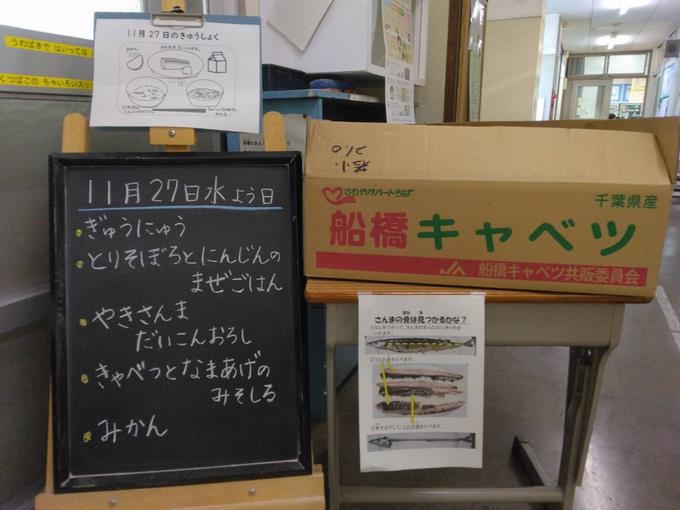 うわばきで はいっては
くつばこの ちゃいろいスリ
11月27日のきゅうしょく
11月27日水よう日
ぎゅうにゅう
とりそぼろとにんじんの
まぜごはん
やきさんま
だいこんおろし
きゃべつとなまあげの
みそしる
みかん
さわやかハートちば
千葉県産
船橋キャベツ
JA 船橋キャベツ共販委員会
さんまの骨は見つかるかな？